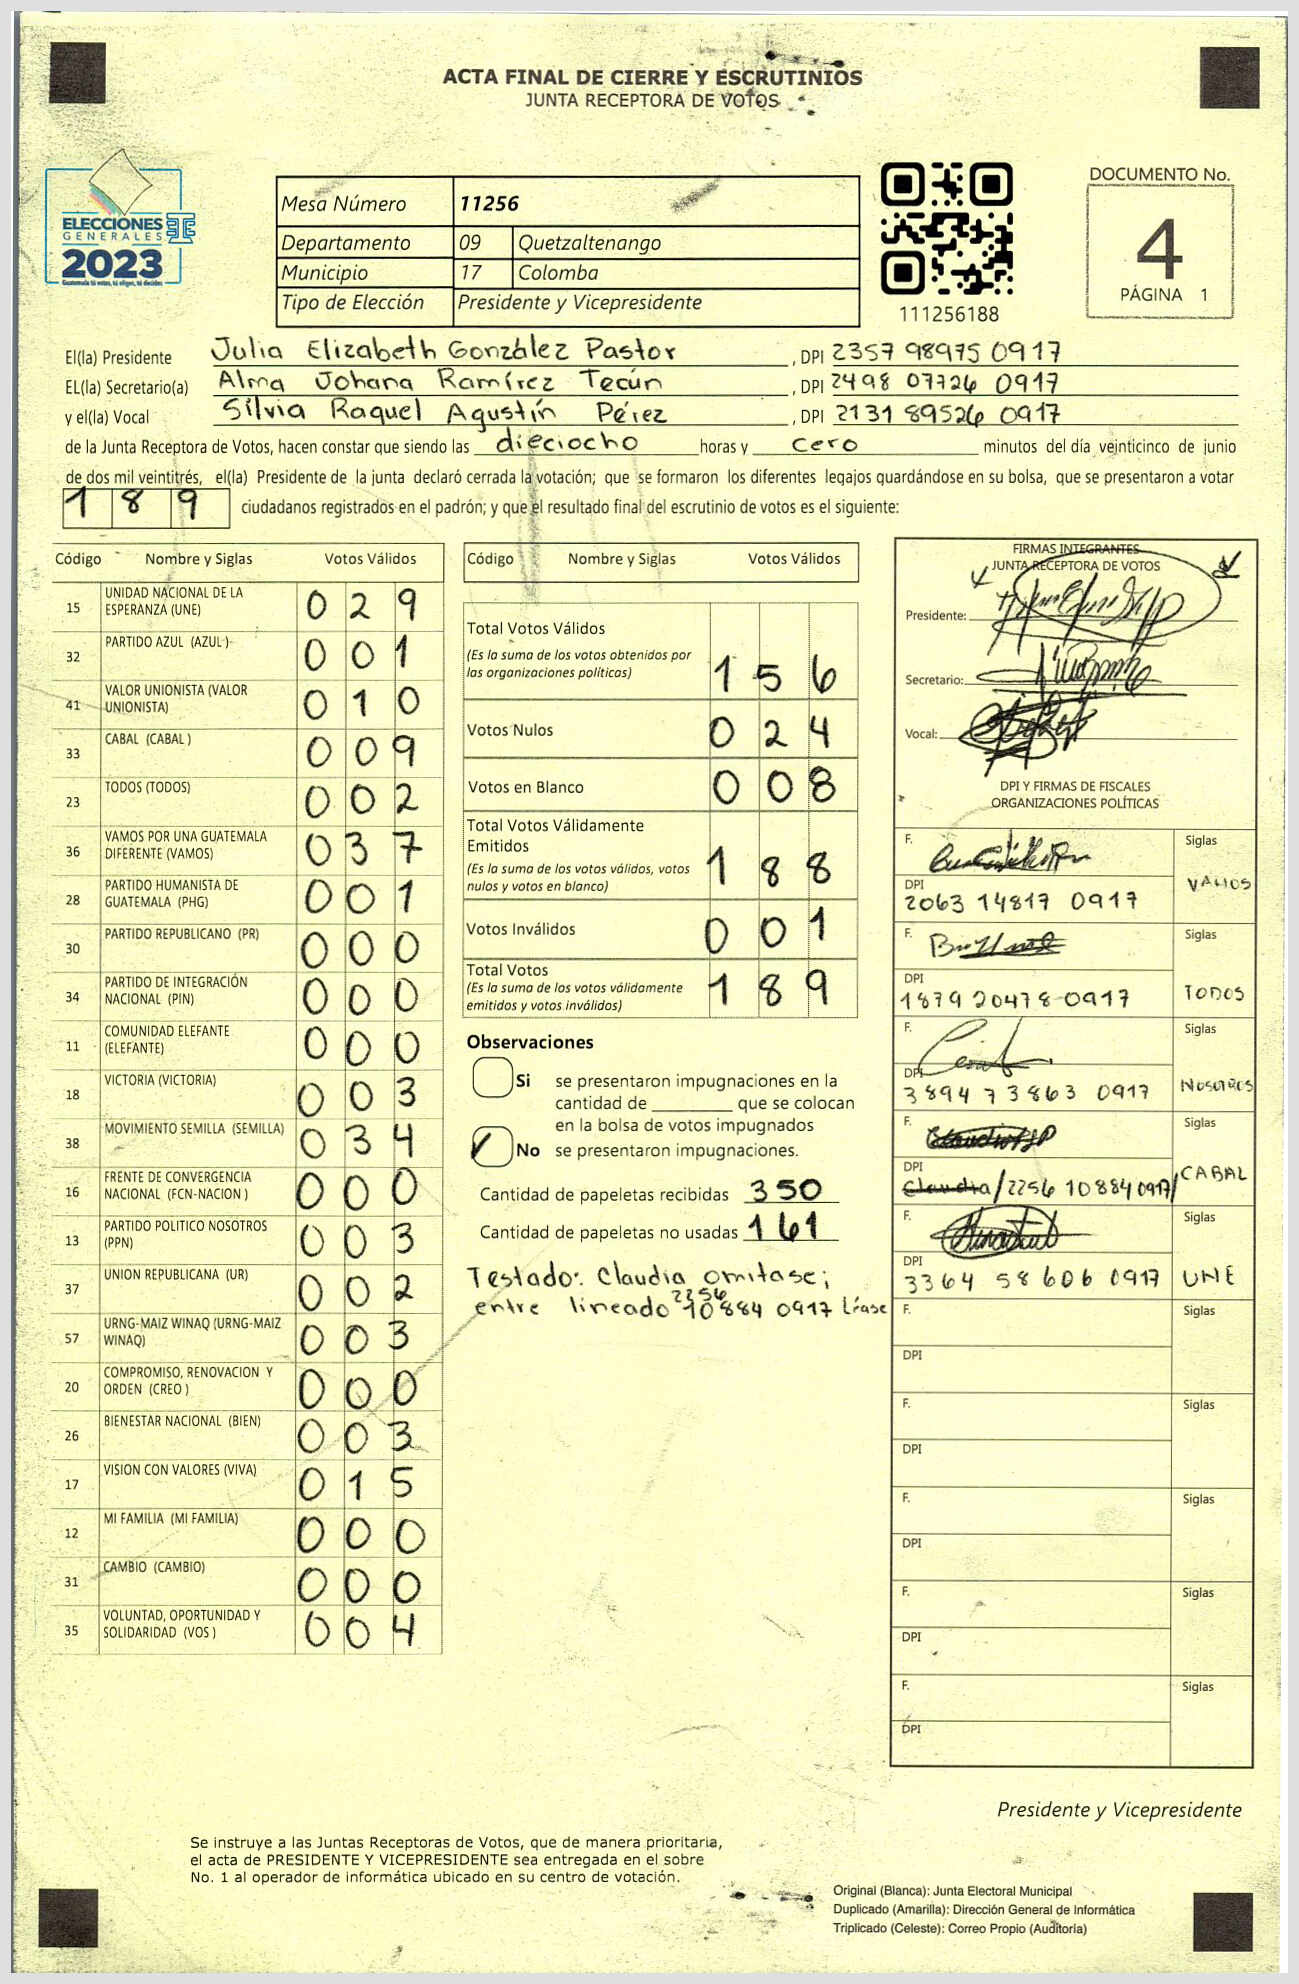 ACTA FINAL DE CIERRE Y ESCRUTINIOS
JUNTA RECEPTORA DE VOTOS
ELECCIONES
GENERALES
2023
Mesa Número 11256
Departamento 09 Quetzaltenango
Municipio 17 Colomba
Tipo de Elección Presidente y Vicepresidente
111256188
DOCUMENTO No.
4
PÁGINA 1
El(la) Presidente Julia Elizabeth González Pastor, DPI 2357 98975 0917
EL(la) Secretario(a) Alma Johana Ramírez Tecún, DPI 2498 07726 0917
y el(la) Vocal Silvia Raquel Agustín Pérez, DPI 2131 89526 0917
de la Junta Receptora de Votos, hacen constar que siendo las dieciocho horas y cero minutos del día veinticinco de junio
de dos mil veintitrés, el(la) Presidente de la junta declaró cerrada la votación; que se formaron los diferentes legajos guardándose en su bolsa, que se presentaron a votar
189 ciudadanos registrados en el padrón; y que el resultado final del escrutinio de votos es el siguiente:
Código Nombre y Siglas Votos Válidos
15 UNIDAD NACIONAL DE LA ESPERANZA (UNE) 029
32 PARTIDO AZUL (AZUL ) 001
41 VALOR UNIONISTA (VALOR UNIONISTA) 010
33 CABAL (CABAL ) 009
23 TODOS (TODOS) 002
36 VAMOS POR UNA GUATEMALA DIFERENTE (VAMOS) 037
28 PARTIDO HUMANISTA DE GUATEMALA (PHG) 001
30 PARTIDO REPUBLICANO (PR) 000
34 PARTIDO DE INTEGRACIÓN NACIONAL (PIN) 000
11 COMUNIDAD ELEFANTE (ELEFANTE) 000
18 VICTORIA (VICTORIA) 003
38 MOVIMIENTO SEMILLA (SEMILLA) 034
16 FRENTE DE CONVERGENCIA NACIONAL (FCN-NACION ) 000
13 PARTIDO POLITICO NOSOTROS (PPN) 003
37 UNION REPUBLICANA (UR) 002
57 URNG-MAIZ WINAQ (URNG-MAIZ WINAQ) 003
20 COMPROMISO, RENOVACION Y ORDEN (CREO ) 000
26 BIENESTAR NACIONAL (BIEN) 003
17 VISION CON VALORES (VIVA) 015
12 MI FAMILIA (MI FAMILIA) 000
31 CAMBIO (CAMBIO) 000
35 VOLUNTAD, OPORTUNIDAD Y SOLIDARIDAD (VOS ) 004
Código Nombre y Siglas Votos Válidos
Total Votos Válidos
(Es la suma de los votos obtenidos por
las organizaciones políticas) 156
Votos Nulos 024
Votos en Blanco 008
Total Votos Válidamente
Emitidos
(Es la suma de los votos válidos, votos
nulos y votos en blanco) 188
Votos Inválidos 001
Total Votos
(Es la suma de los votos válidamente
emitidos y votos inválidos) 189
Observaciones
Si se presentaron impugnaciones en la
cantidad de ________ que se colocan
en la bolsa de votos impugnados
No se presentaron impugnaciones.
Cantidad de papeletas recibidas 350
Cantidad de papeletas no usadas 161
Testado: Claudia omitase;
entre lineado 2256 10884 0917 Léase
FIRMAS INTEGRANTES
JUNTA RECEPTORA DE VOTOS
Presidente:
Secretario:
Vocal:
DPI Y FIRMAS DE FISCALES
ORGANIZACIONES POLÍTICAS
F. Siglas
DPI 2063 14817 0917 VAMOS
F. Siglas
DPI 1879 20478 0917 TODOS
F. Siglas
DPI 3894 73863 0917 NOSOTROS
F. Siglas
DPI Claudia/2256 10884 0917/ CABAL
F. Siglas
DPI 3364 58606 0917 UNE
F. Siglas
DPI
F. Siglas
DPI
F. Siglas
DPI
F. Siglas
DPI
F. Siglas
DPI
Presidente y Vicepresidente
Se instruye a las Juntas Receptoras de Votos, que de manera prioritaria,
el acta de PRESIDENTE Y VICEPRESIDENTE sea entregada en el sobre
No. 1 al operador de informática ubicado en su centro de votación.
Original (Blanca): Junta Electoral Municipal
Duplicado (Amarilla): Dirección General de Informática
Triplicado (Celeste): Correo Propio (Auditoría)